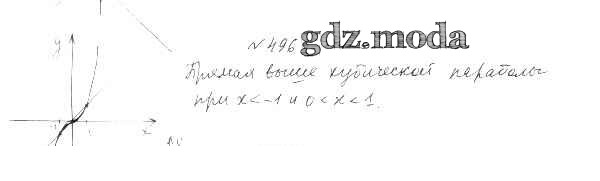 N 496 gdz.moda
Прямая выше кубической параболы
при x < -1 и 0 < x < 1.
y
x